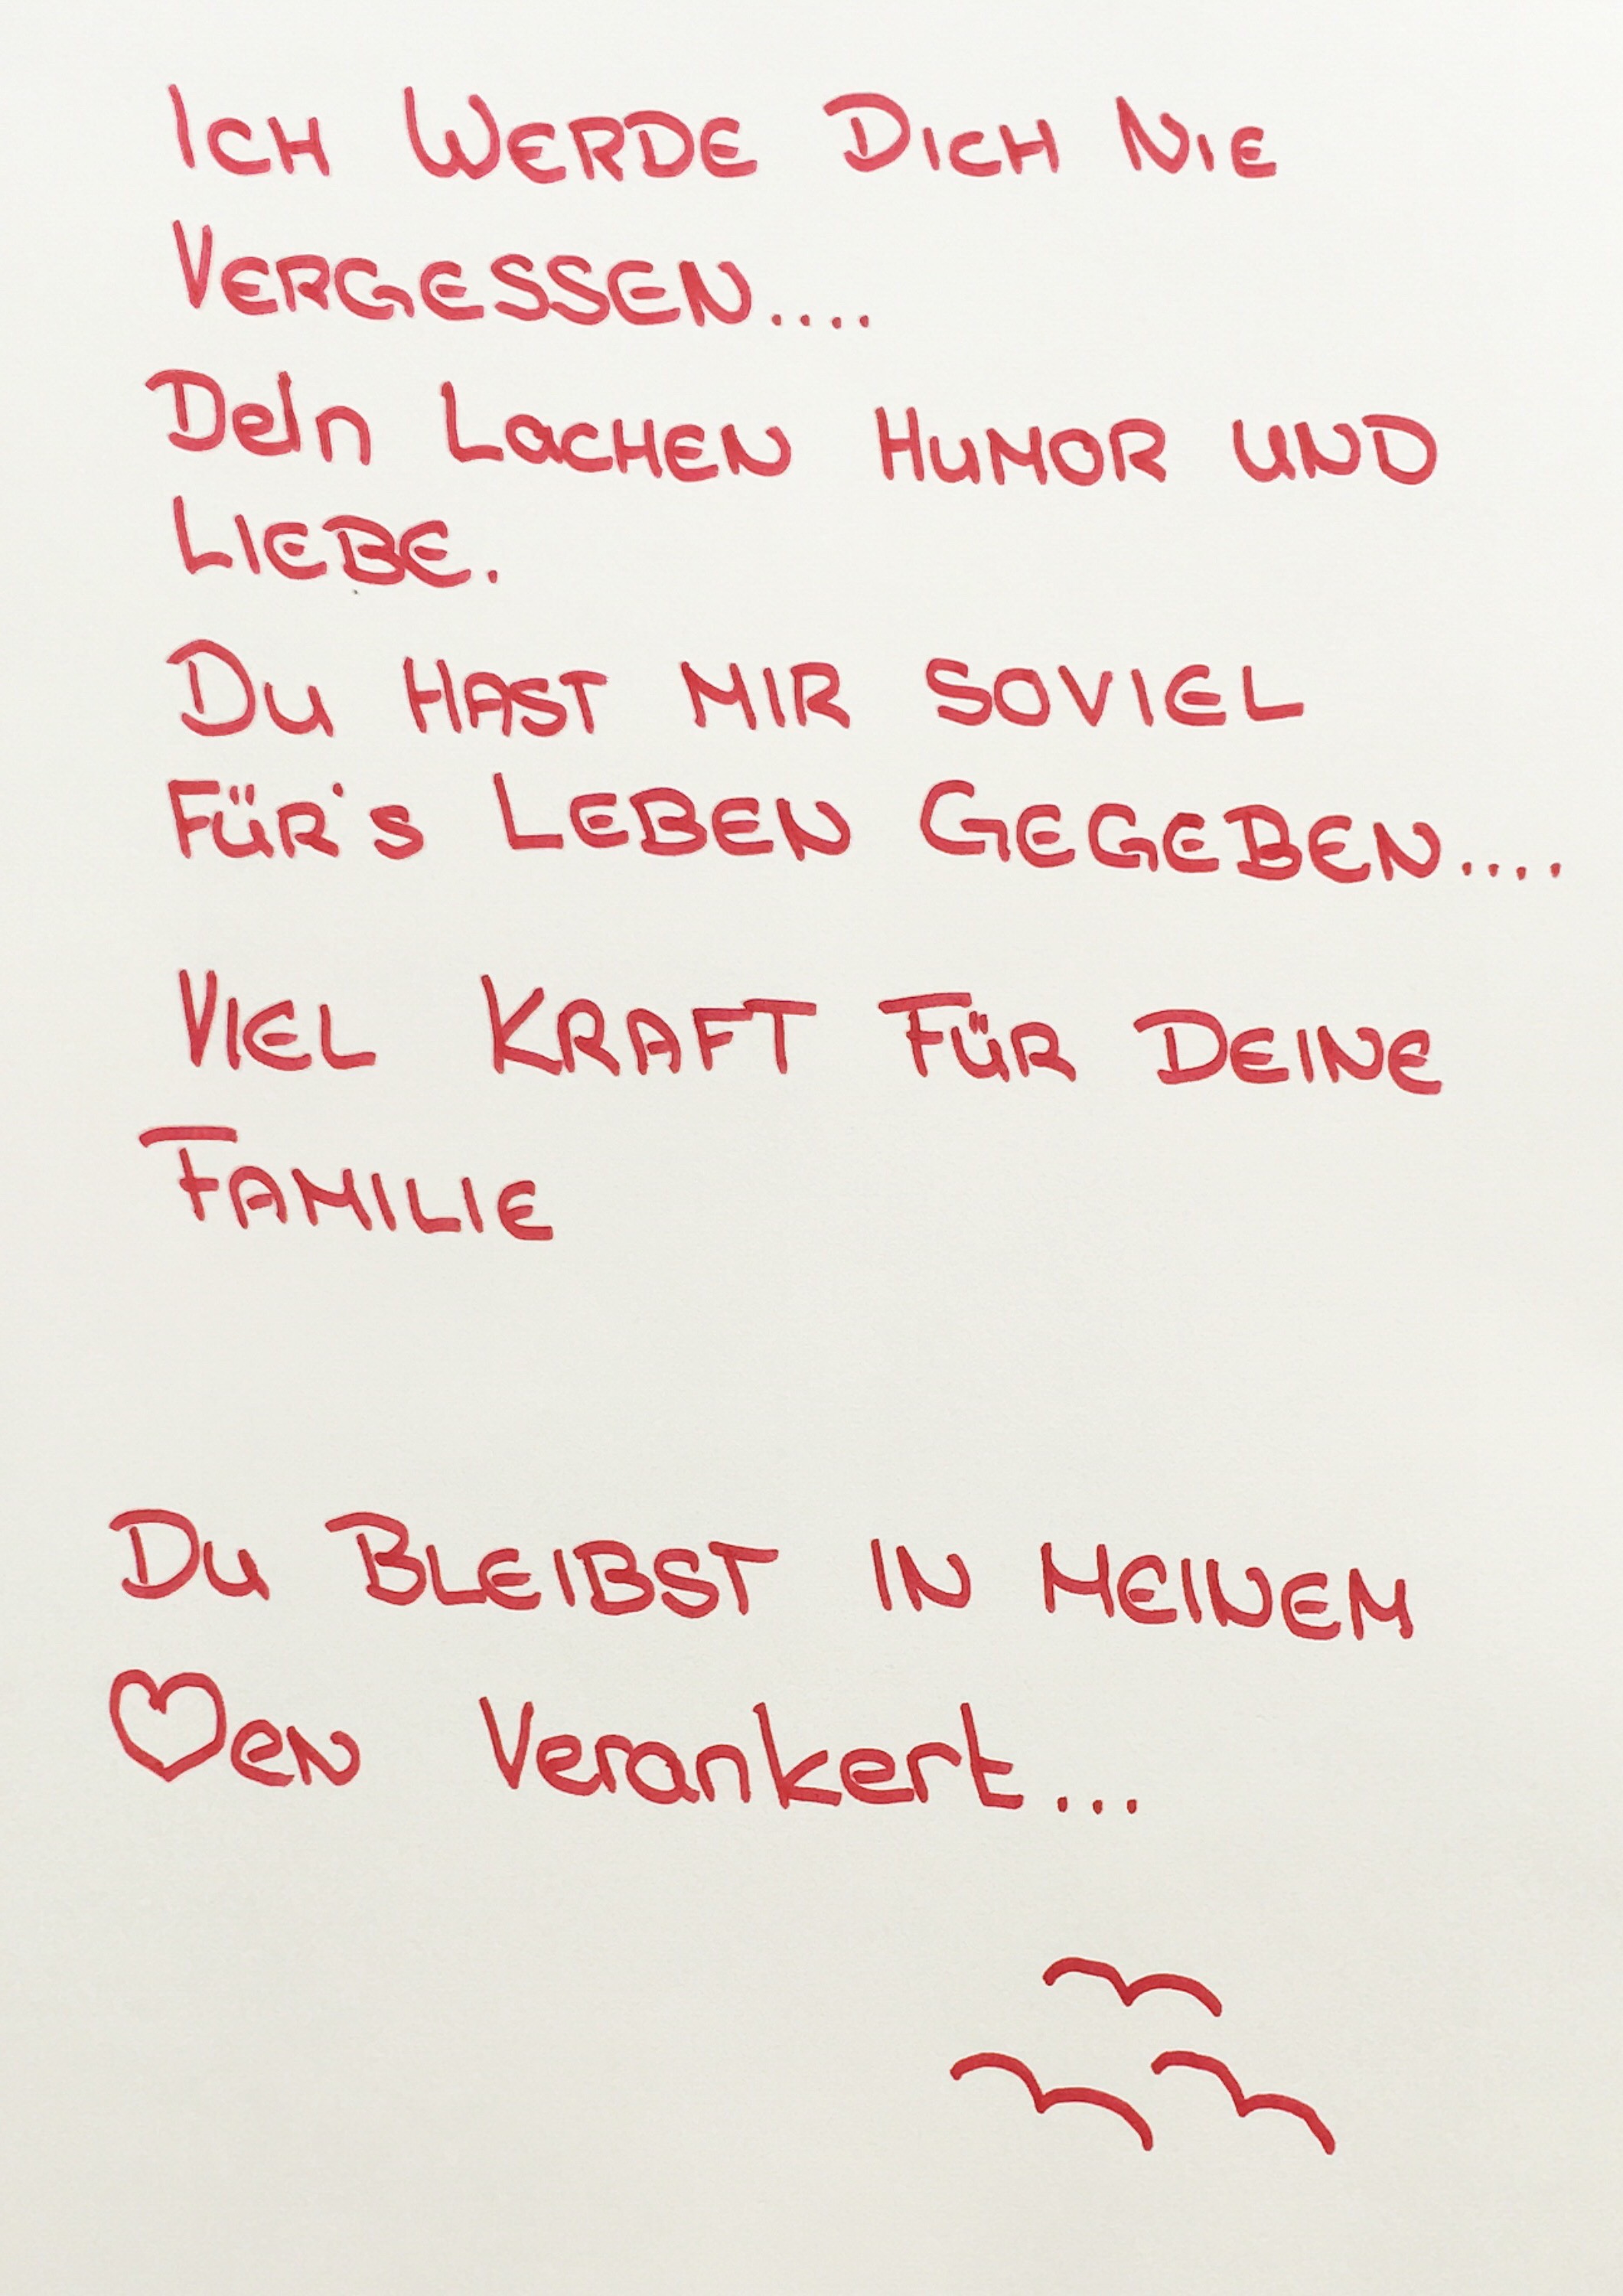 Ich Werde Dich Nie
Vergessen....
Dein Lachen Humor und
Liebe.
Du hast mir soviel
Für's Leben Gegeben....
Viel Kraft für Deine
Familie
Du Bleibst in meinem
♡en Verankert...